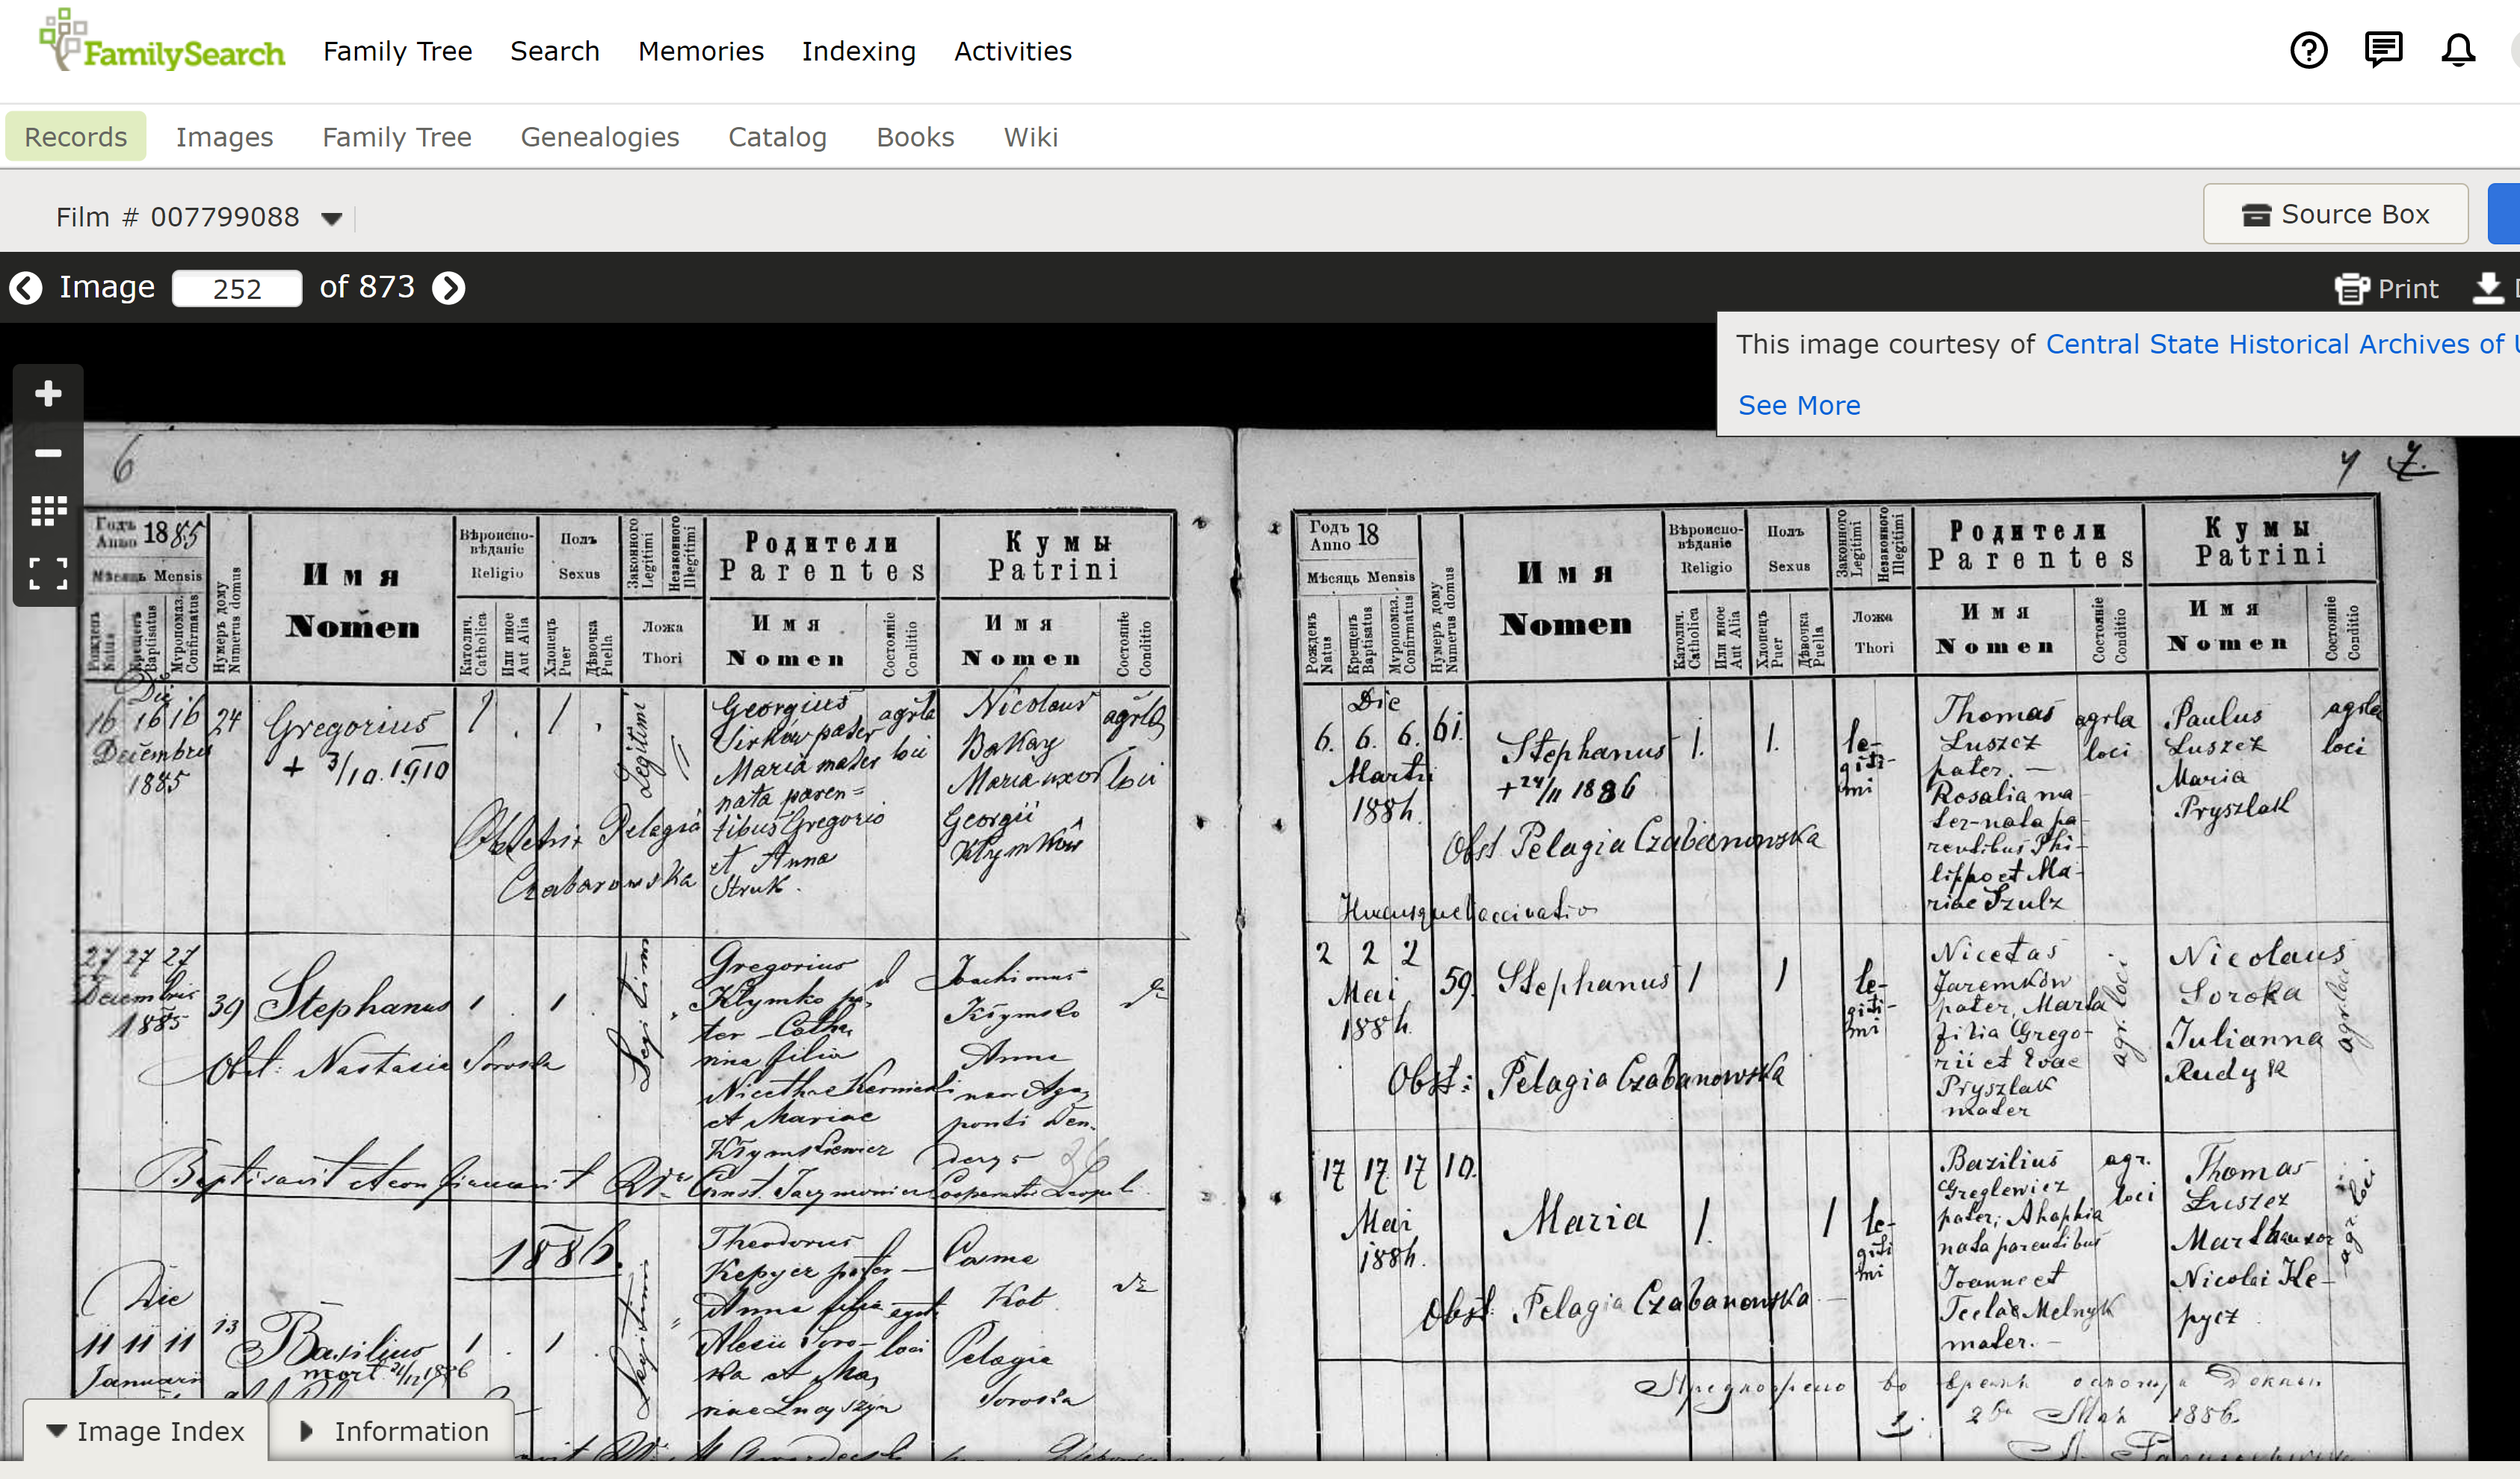 FamilySearch
Family Tree
Search
Memories
Indexing
Activities
Records
Images
Family Tree
Genealogies
Catalog
Books
Wiki
Film # 007799088
Source Box
Image 252 of 873
Print
This image courtesy of Central State Historical Archives of
See More
6
Годъ Anno 1885
Мѣсяць Mensis
Рожденъ Natus
Крещенъ Baptisatus
Муропомаз. Confirmatus
Нумеръ дому Numerus domus
Имя
Nomen
Вѣроиспо-
вѣданіе
Religio
Католич. Catholica
Или иное Aut Alia
Полъ
Sexus
Хлопецъ Puer
Дѣвочка Puella
Законного Legitimi
Незаконного Illegitimi
Ложа
Thori
Родители
Parentes
Имя
Nomen
Состояніе Conditio
Кумы
Patrini
Имя
Nomen
Состояніе Conditio
Die
16 16 16
Decembris
1885
24
Gregorius
+ 3/10. 1910
1
1
Legitimi
Georgius
pater
Maria mater
nata paren=
tibus Gregorio
et Anna
Struk.
agrla
loci
Nicolaus
Bakay
Maria uxor
Georgii
Klymków
loci
Obstetrix Pelagia
27 27 27
Decembris
1885
39
Stephanus
1
1
Obst: Nastasia Soroka
Gregorius
Klymko pa-
ter
filia
et Mariae
Anna
Baptisavit et confirmavit
1886.
Die
11 11 11
Januarii
13
Basilius
mort.
1
1
Theodorus
Kepycz pater
Anna filia
Alexii Soro-
ka et Ma-
riae
loci
Cosma
Kot
Pelagia
Soroka
7 7.
Годъ Anno 18
Мѣсяць Mensis
Рожденъ Natus
Крещенъ Baptisatus
Муропомаз. Confirmatus
Нумеръ дому Numerus domus
Имя
Nomen
Вѣроиспо-
вѣданіе
Religio
Католич. Catholica
Или иное Aut Alia
Полъ
Sexus
Хлопецъ Puer
Дѣвочка Puella
Законного Legitimi
Незаконного Illegitimi
Ложа
Thori
Родители
Parentes
Имя
Nomen
Состояніе Conditio
Кумы
Patrini
Имя
Nomen
Состояніе Conditio
Die
6. 6. 6.
Martii
1886.
61.
Stephanus
+ 24/11 1886
1.
1.
le-
giti-
mi
Thomas
Łuszcz
pater. —
Rosalia ma-
ter-nata pa-
rentibus Phi-
lippo et Ma-
riae Szulz
agrla
loci
Paulus
Łuszcz
Maria
Pryszlak
agrla
loci
Obst Pelagia Czabanowska
2 2 2
Mai
1886.
59.
Stephanus
1
1
le-
giti-
mi
Nicetas
Jaremków
pater, Maria
filia Grego-
rii et Evae
Pryszlak
mater
agr. loci
Nicolaus
Soroka
Julianna
Rudyk
agr. loci
Obst: Pelagia Czabanowska
17 17 17
Mai
1886.
10.
Maria
1.
1
le-
giti
mi
Bazilius
Greglewicz
pater;
nata parentibus
Joanne et
Teclae Melnyk
mater. —
agr.
loci
Thomas
Łuszcz
Martha uxor
Nicolai Ke-
pycz
agr. loci
Obst: Pelagia Czabanowska
1886.
Image Index
Information